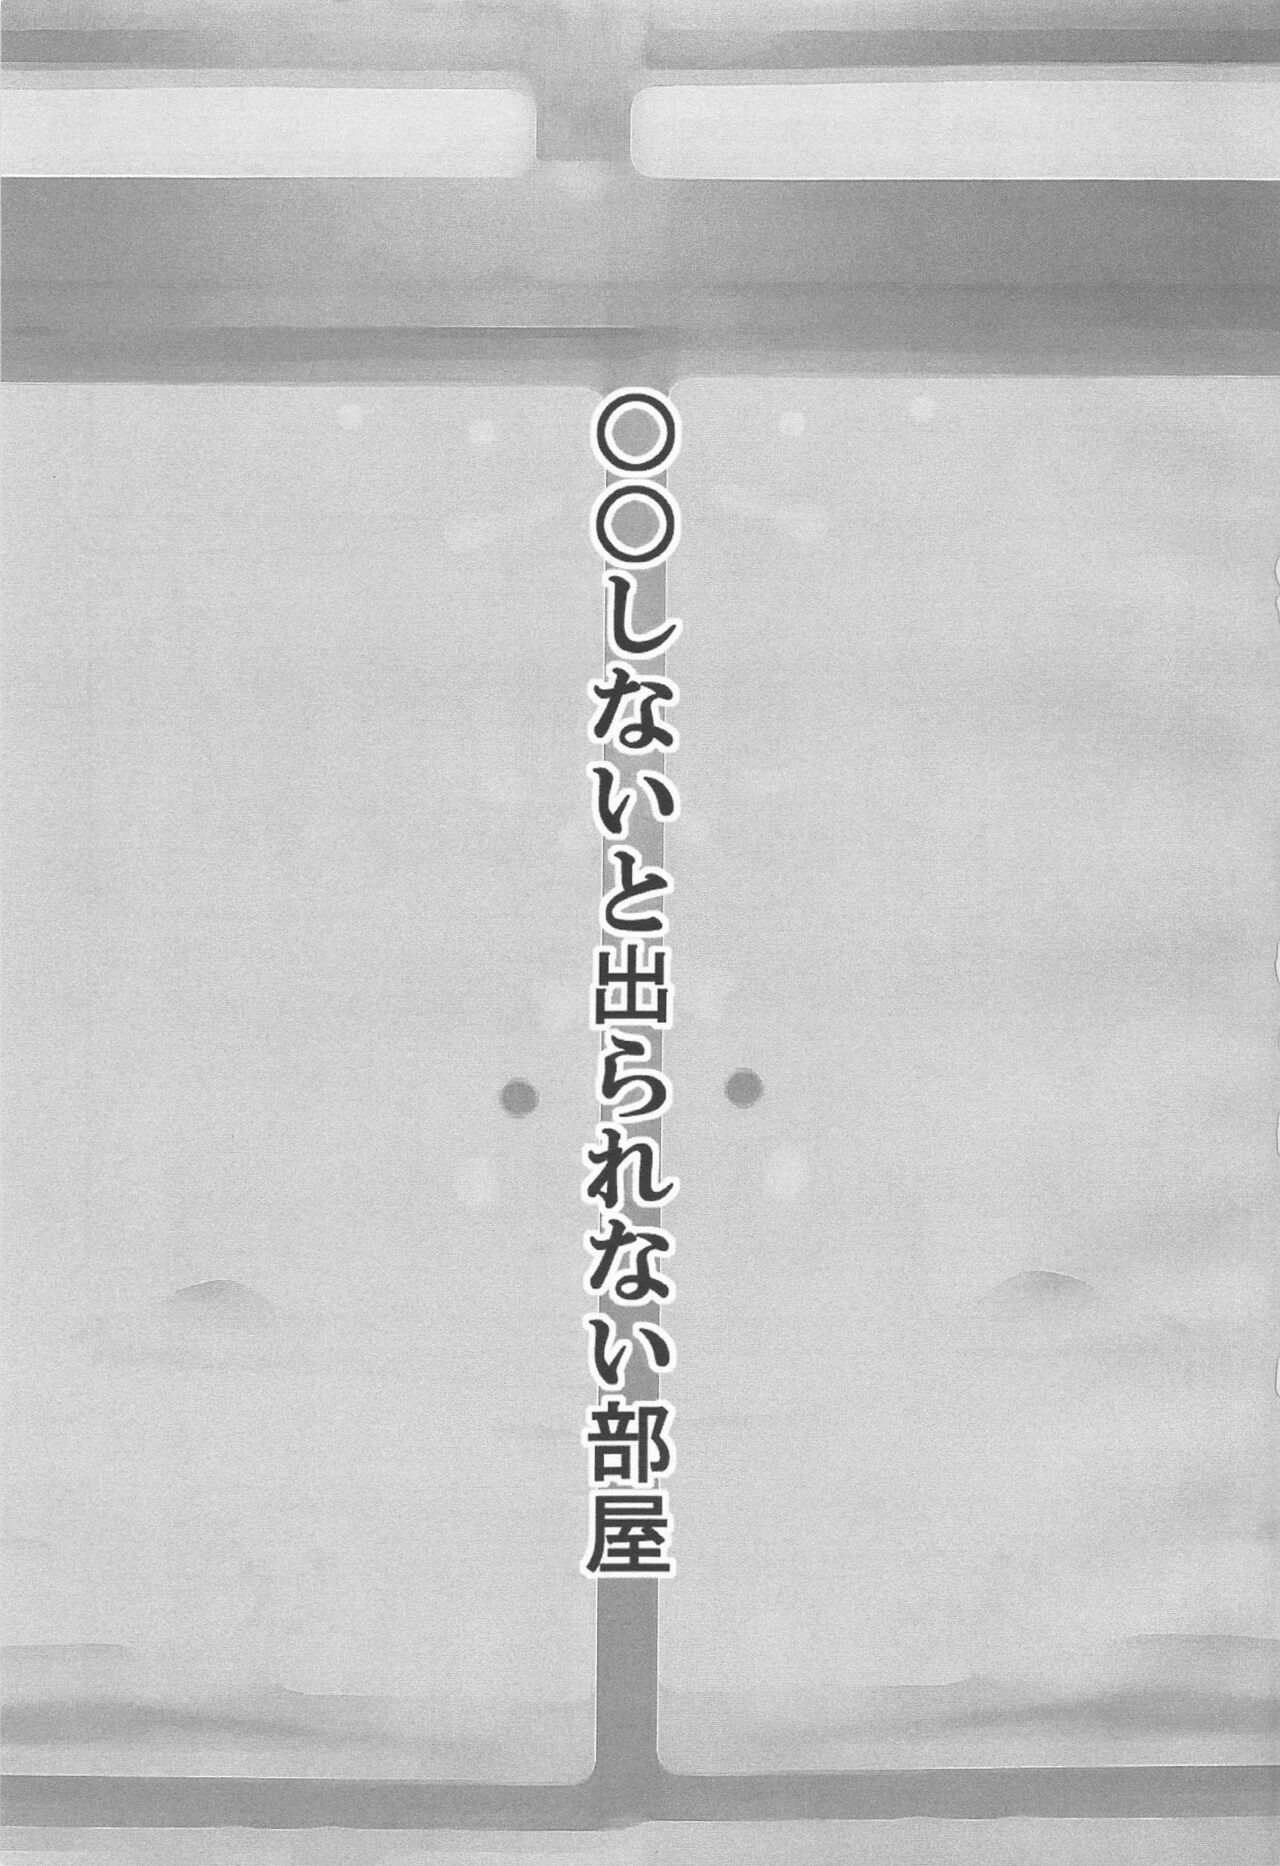 〇〇しないと出られない部屋